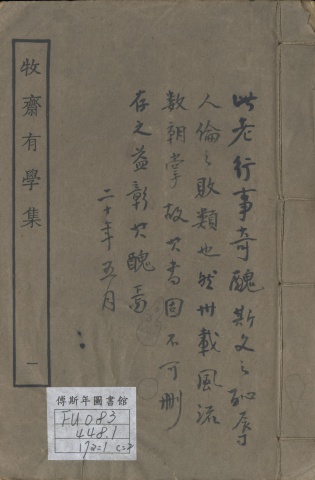 此老行事奇醜斯文之恥辱
人倫之敗類也然卅載風流
數朝掌故其書固不可刪
存之益彰其醜焉
二十年五月
牧齋有學集
一
傅斯年圖書館
FU083
448.1